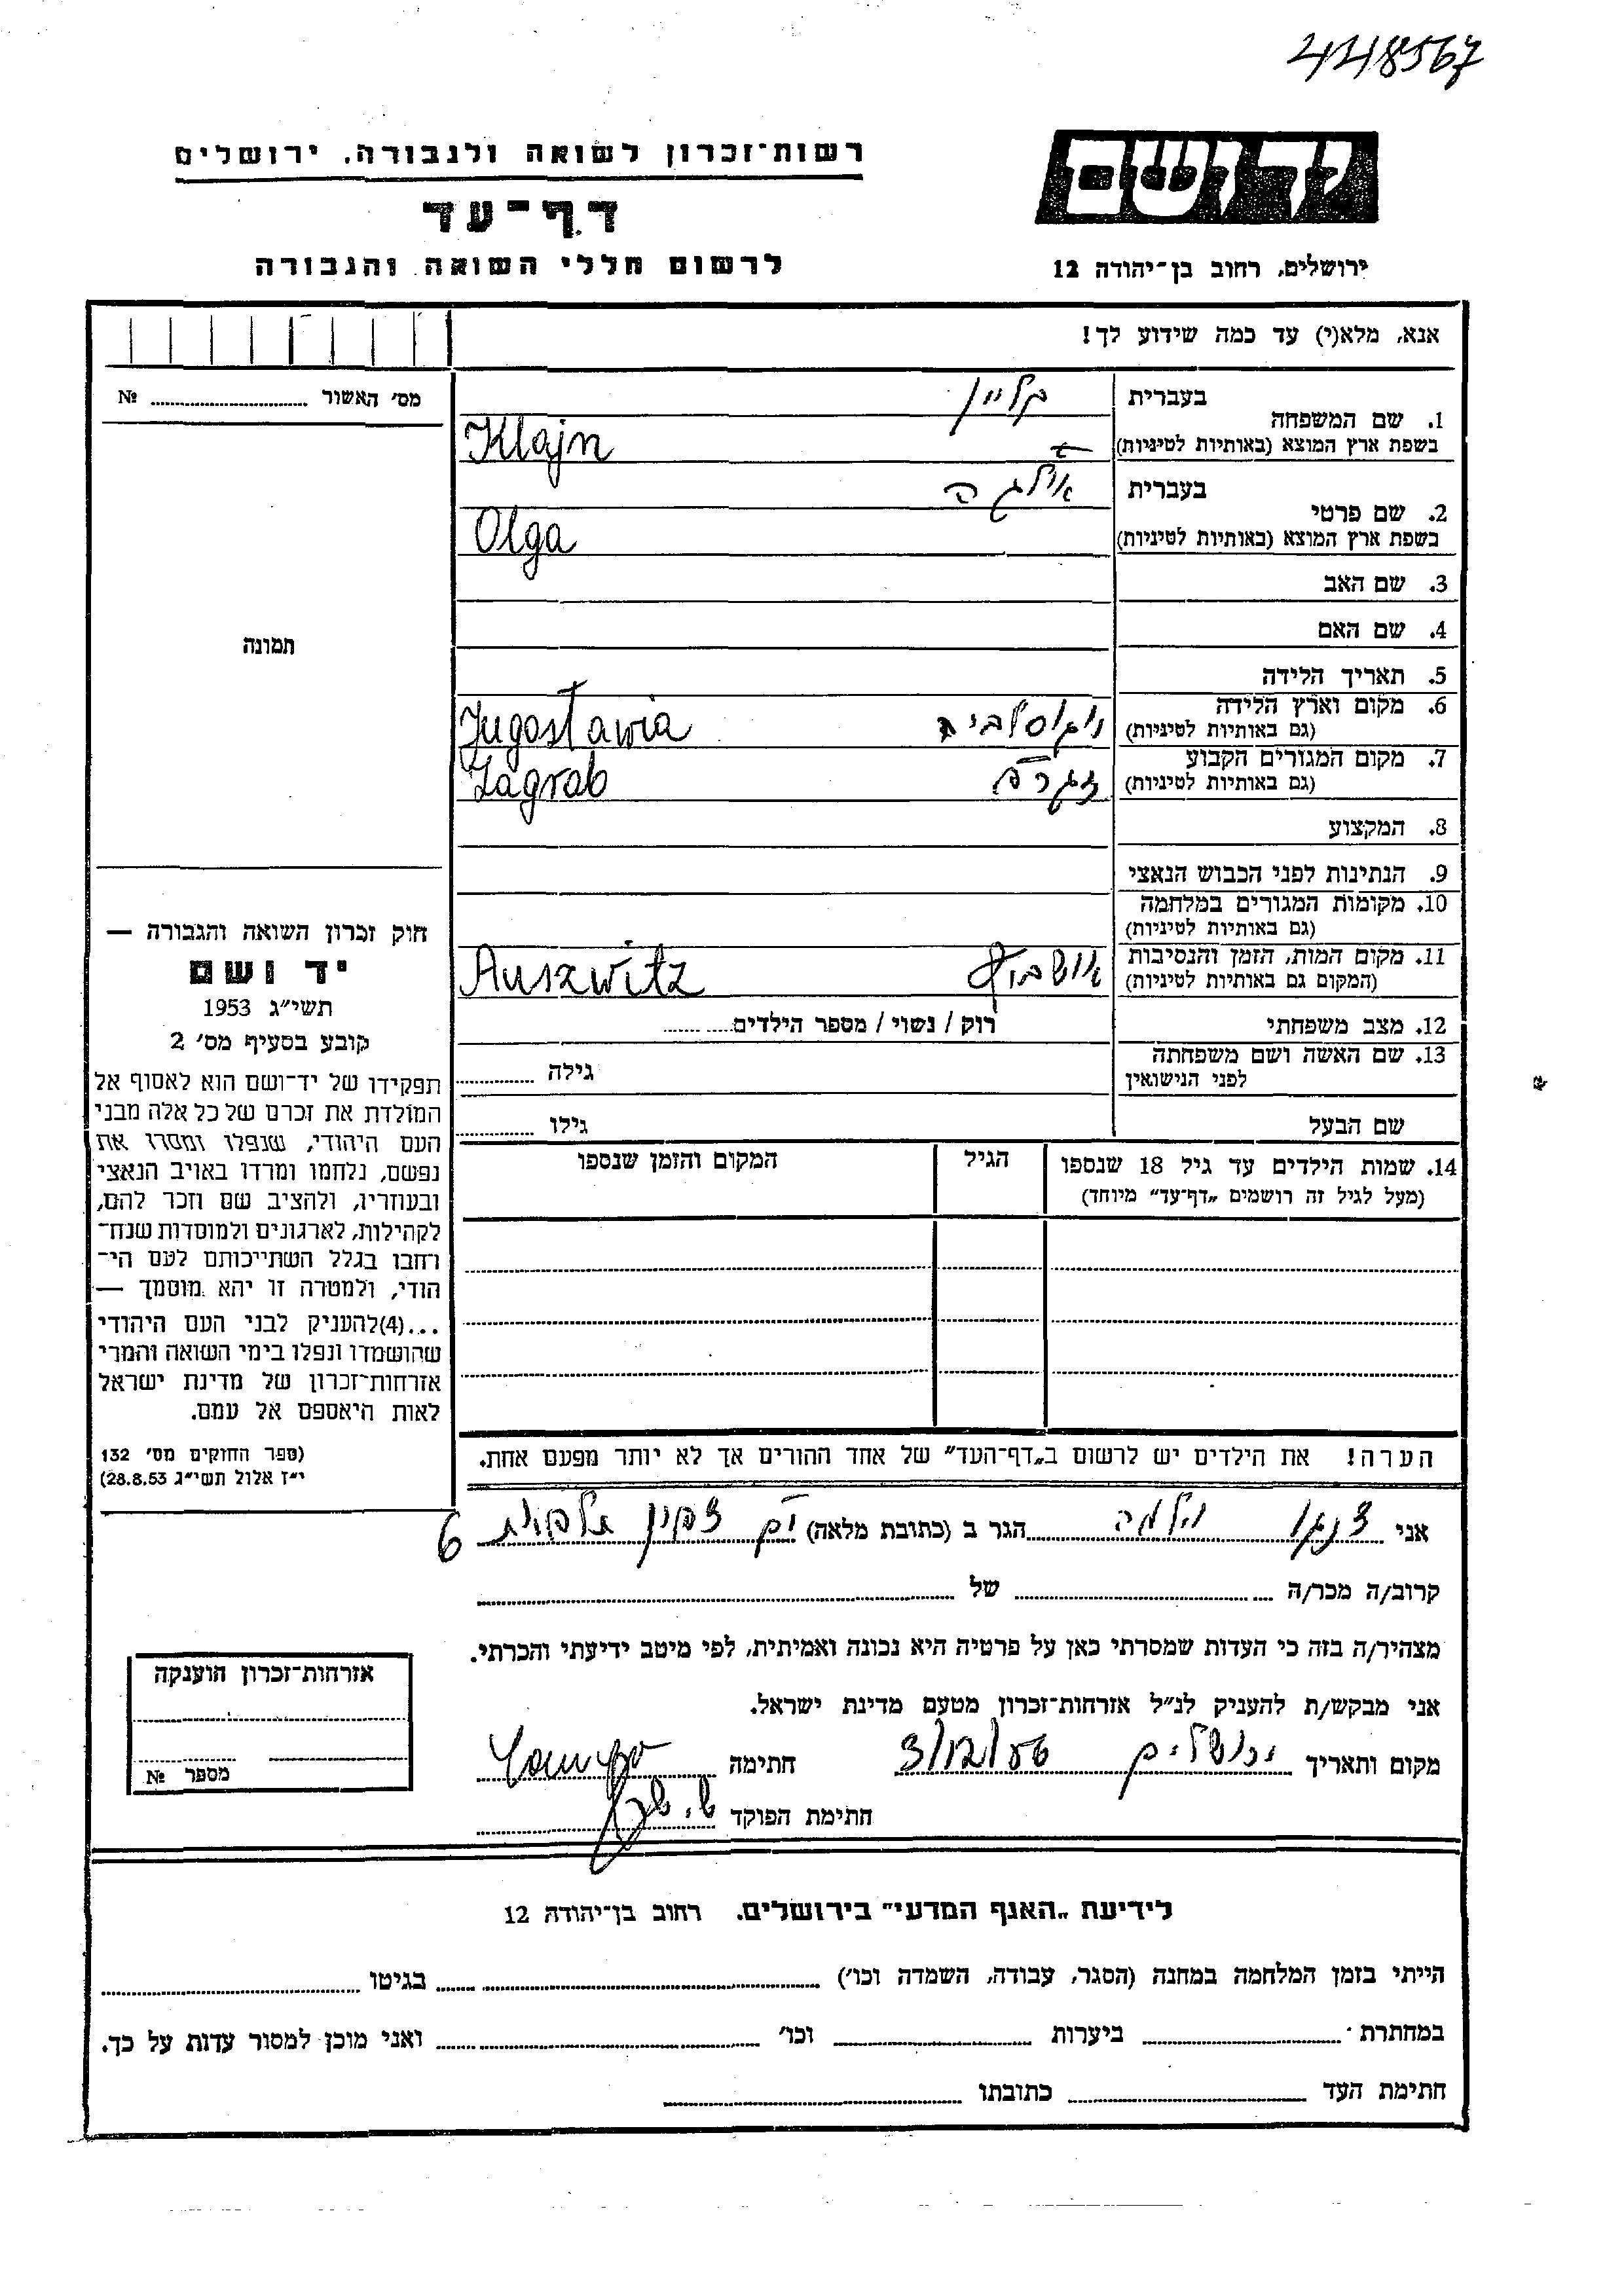 448567
רשות־זכרון לשואה ולגבורה, ירושלים
דף־עד
לרשום חללי השואה והגבורה
ידושם
ירושלים, רחוב בן־יהודה 12
אנא, מלא(י) עד כמה שידוע לך!
מס׳ האשור № 
תמונה
1. שם המשפחה בעברית קליין
בשפת ארץ המוצא (באותיות לטיניות) Klajn
2. שם פרטי בעברית אולגה
בשפת ארץ המוצא (באותיות לטיניות) Olga
3. שם האב
4. שם האם
5. תאריך הלידה
6. מקום וארץ הלידה
(גם באותיות לטיניות) יוגוסלביה Jugostawia
7. מקום המגורים הקבוע
(גם באותיות לטיניות) זגרב Zagrab
8. המקצוע
9. הנתינות לפני הכבוש הנאצי
10. מקומות המגורים במלחמה
(גם באותיות לטיניות)
11. מקום המות, הזמן והנסיבות
(המקום גם באותיות לטיניות) אושביץ Auszwitz
12. מצב משפחתי רוק / נשוי / מספר הילדים
13. שם האשה ושם משפחתה
לפני הנישואין גילה
שם הבעל גילו
14. שמות הילדים עד גיל 18 שנספו הגיל המקום והזמן שנספו
(מעל לגיל זה רושמים „דף־עד״ מיוחד)
הערה! את הילדים יש לרשום ב„דף־העד״ של אחד ההורים אך לא יותר מפעם אחת.
חוק זכרון השואה והגבורה —
יד ושם
תשי״ג 1953
קובע בסעיף מס׳ 2
תפקידו של יד־ושם הוא לאסוף אל
המולדת את זכרם של כל אלה מבני
העם היהודי, שנפלו ומסרו את
נפשם, נלחמו ומרדו באויב הנאצי
ובעוזריו, ולהציב שם וזכר להם,
לקהילות, לארגונים ולמוסדות שנח־
רחבו בגלל השתייכותם לעם הי־
הודי, ולמטרה זו יהא מוסמך —
...(4)להעניק לבני העם היהודי
שהושמדו ונפלו בימי השואה והמרי
אזרחות־זכרון של מדינת ישראל
לאות היאספם אל עמם.
(ספר החוקים מס׳ 132
י״ז אלול תשי״ג 28.8.53)
אני הגר ב (כתובת מלאה) 6
קרוב/ה מכר/ה של
מצהיר/ה בזה כי העדות שמסרתי כאן על פרטיה היא נכונה ואמיתית, לפי מיטב ידיעתי והכרתי.
אני מבקש/ת להעניק לנ״ל אזרחות־זכרון מטעם מדינת ישראל.
מקום ותאריך ירושלים 3/12/56 חתימה
חתימת הפוקד
אזרחות־זכרון הוענקה
מספר №
לידיעת „האגף המדעי״ בירושלים. רחוב בן־יהודה 12
הייתי בזמן המלחמה במחנה (הסגר, עבודה, השמדה וכו׳) בגיטו
במחתרת ביערות וכו׳ ואני מוכן למסור עדות על כך.
חתימת העד כתובתו